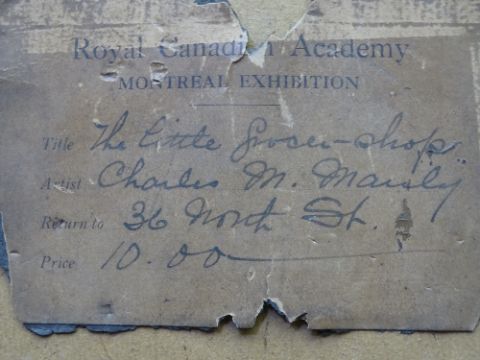 Royal Canadian Academy
MONTREAL EXHIBITION
Title The Little Grocer-shop
Artist Charles M. Manly
Return to 36 North St.
Price 10.00